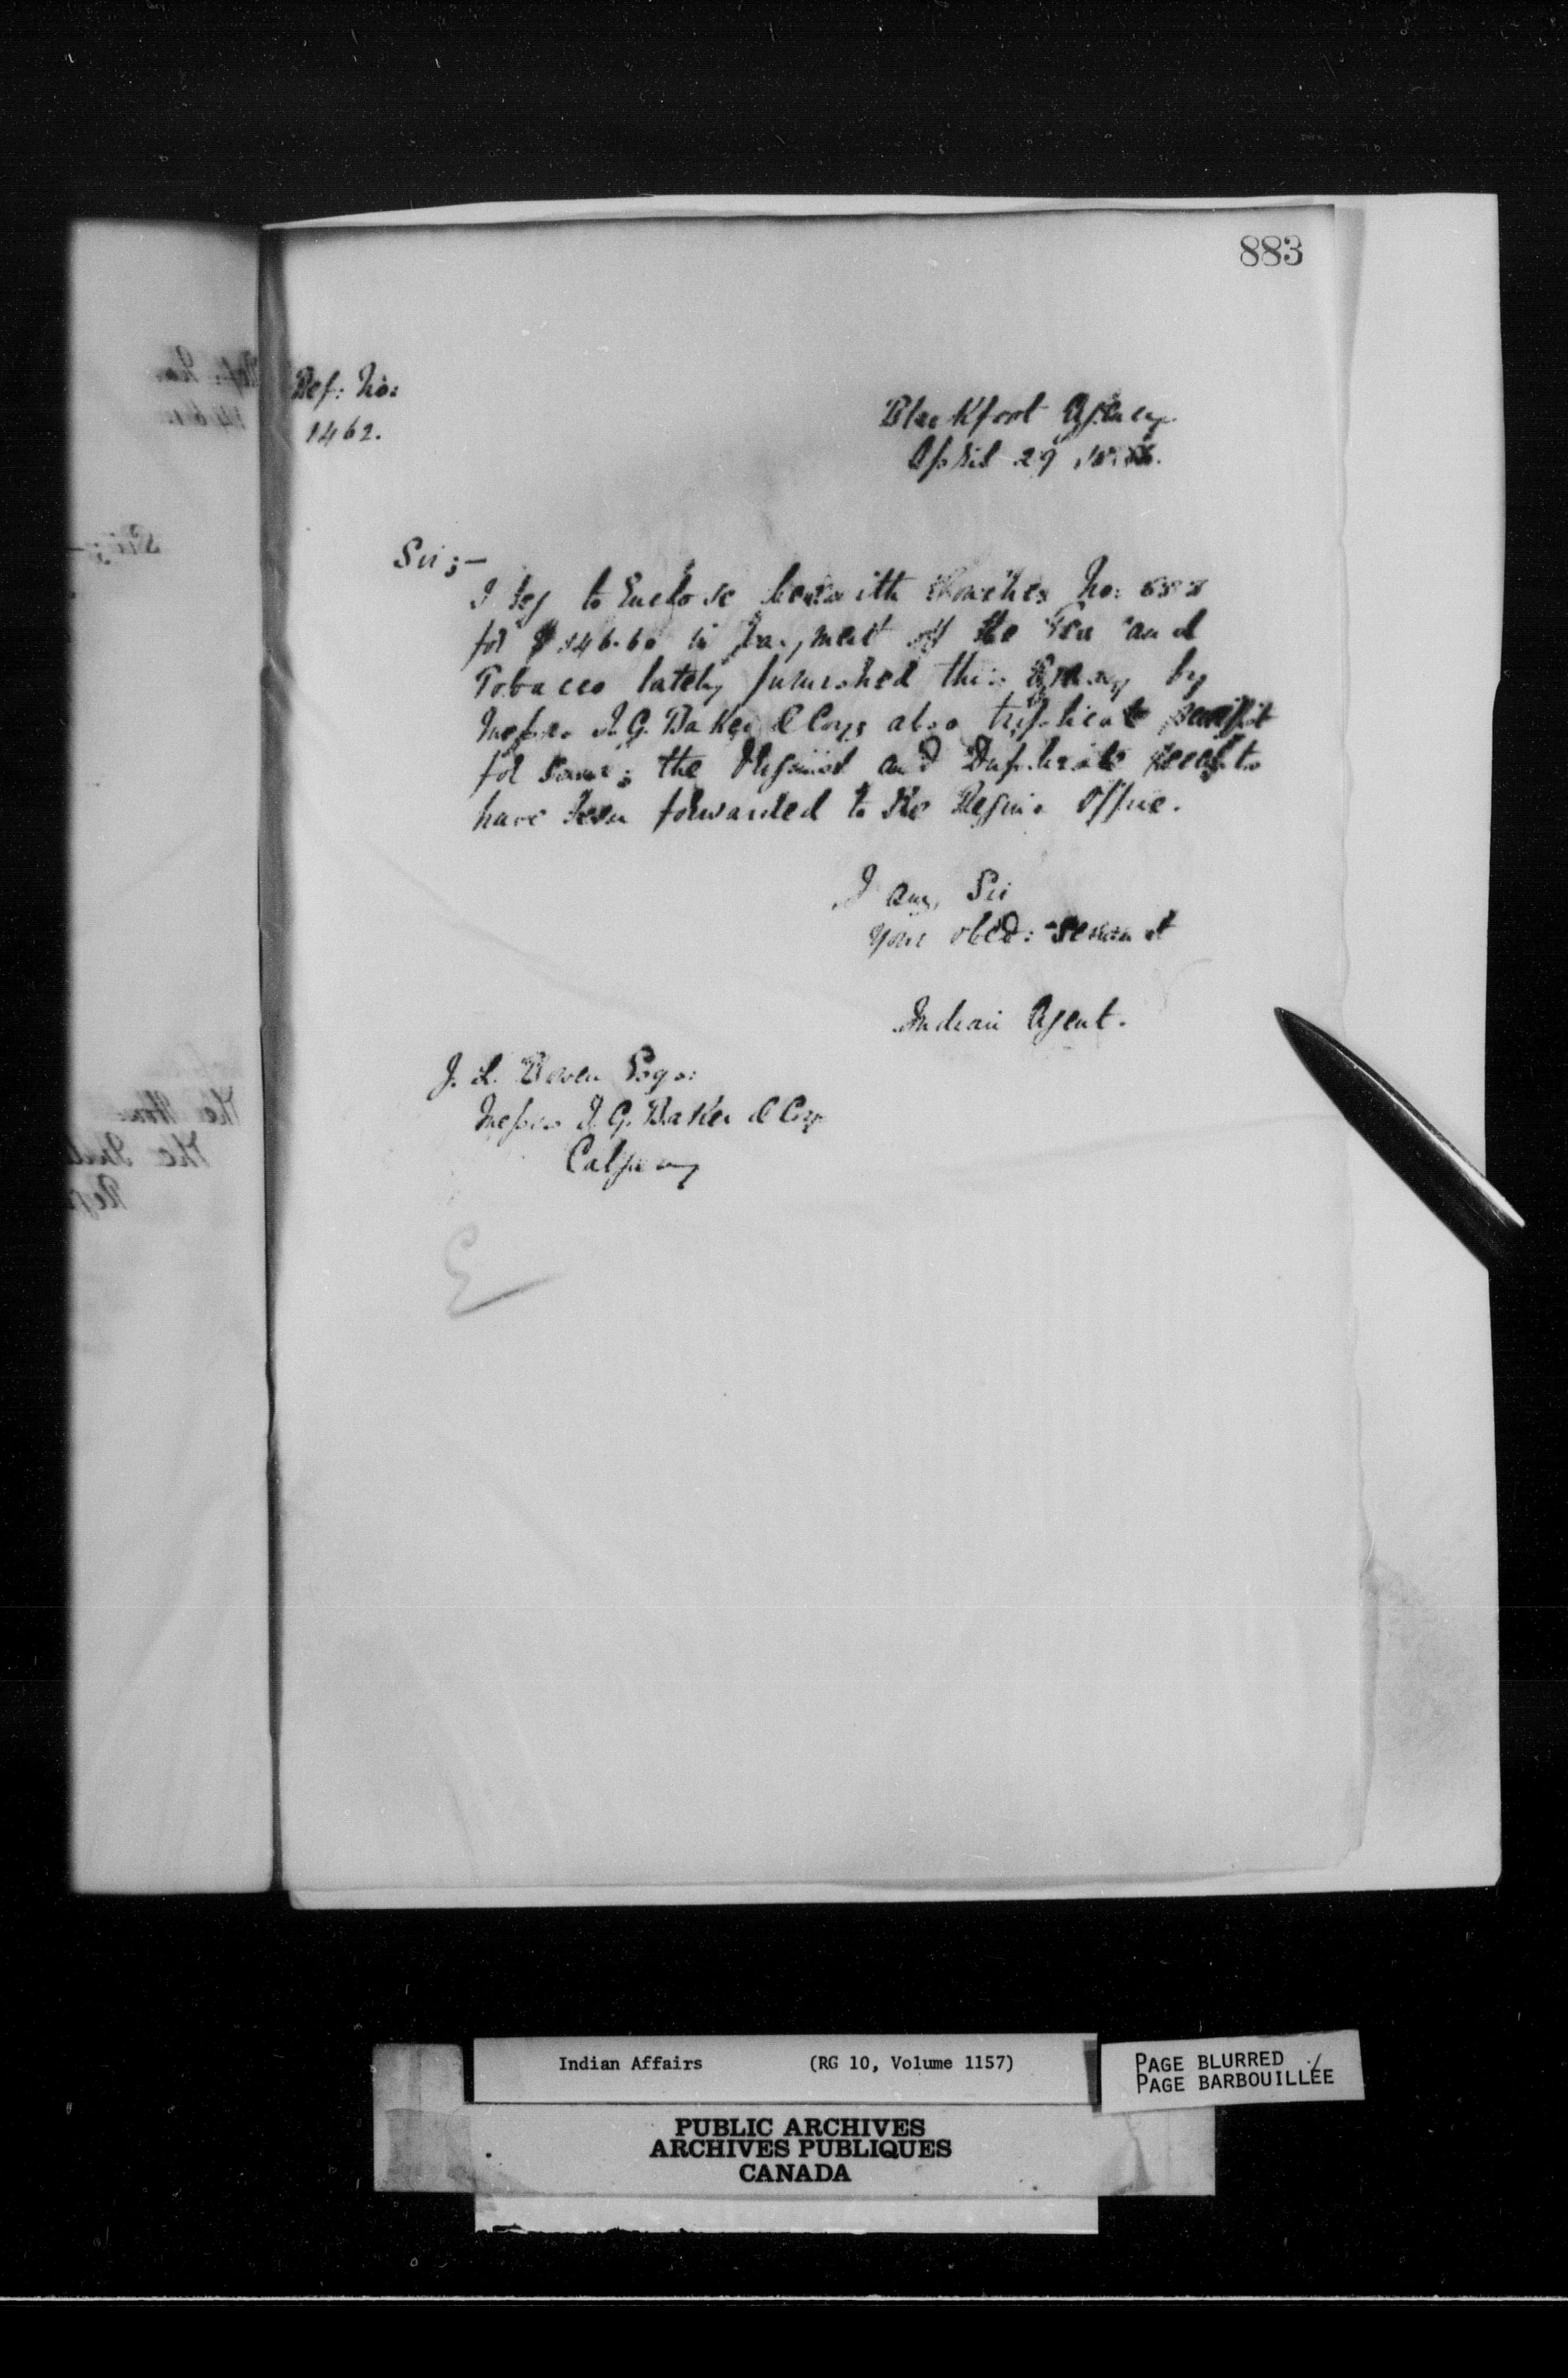 883
Ref: No:
1462.
Blackfoot Agency
April 29
Sir;—
I beg to Enclose herewith Voucher No:
for $146.60 in payment of the Tea and
Tobacco lately furnished this Agency by
Messrs I. G. Baker & Coy; also triplicate receipt
for same; the Original and Duplicate receipts
have been forwarded to the Regina Office.
I am, Sir
Your obed: servant
Indian Agent.
J. L. Bowen Esqr:
Messrs I. G. Baker & Coy
Calgary
Indian Affairs (RG 10, Volume 1157)
PAGE BLURRED
PAGE BARBOUILLÉE
PUBLIC ARCHIVES
ARCHIVES PUBLIQUES
CANADA